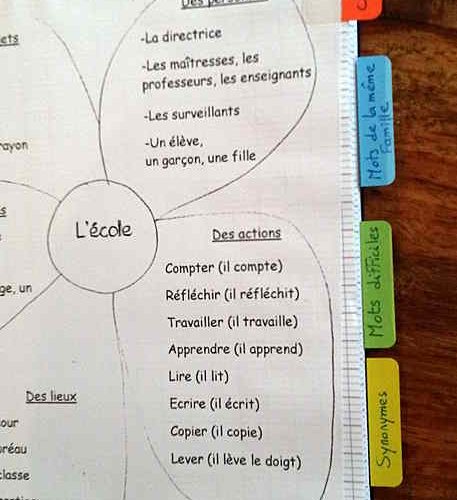 -La directrice
-Les maîtresses, les
professeurs, les enseignants
-Les surveillants
-Un élève,
un garçon, une fille
L'école
Des actions
Compter (il compte)
Réfléchir (il réfléchit)
Travailler (il travaille)
Apprendre (il apprend)
Lire (il lit)
Ecrire (il écrit)
Copier (il copie)
Lever (il lève le doigt)
un
Des lieux
Mots de la même
Famille
Mots difficiles
Synonymes